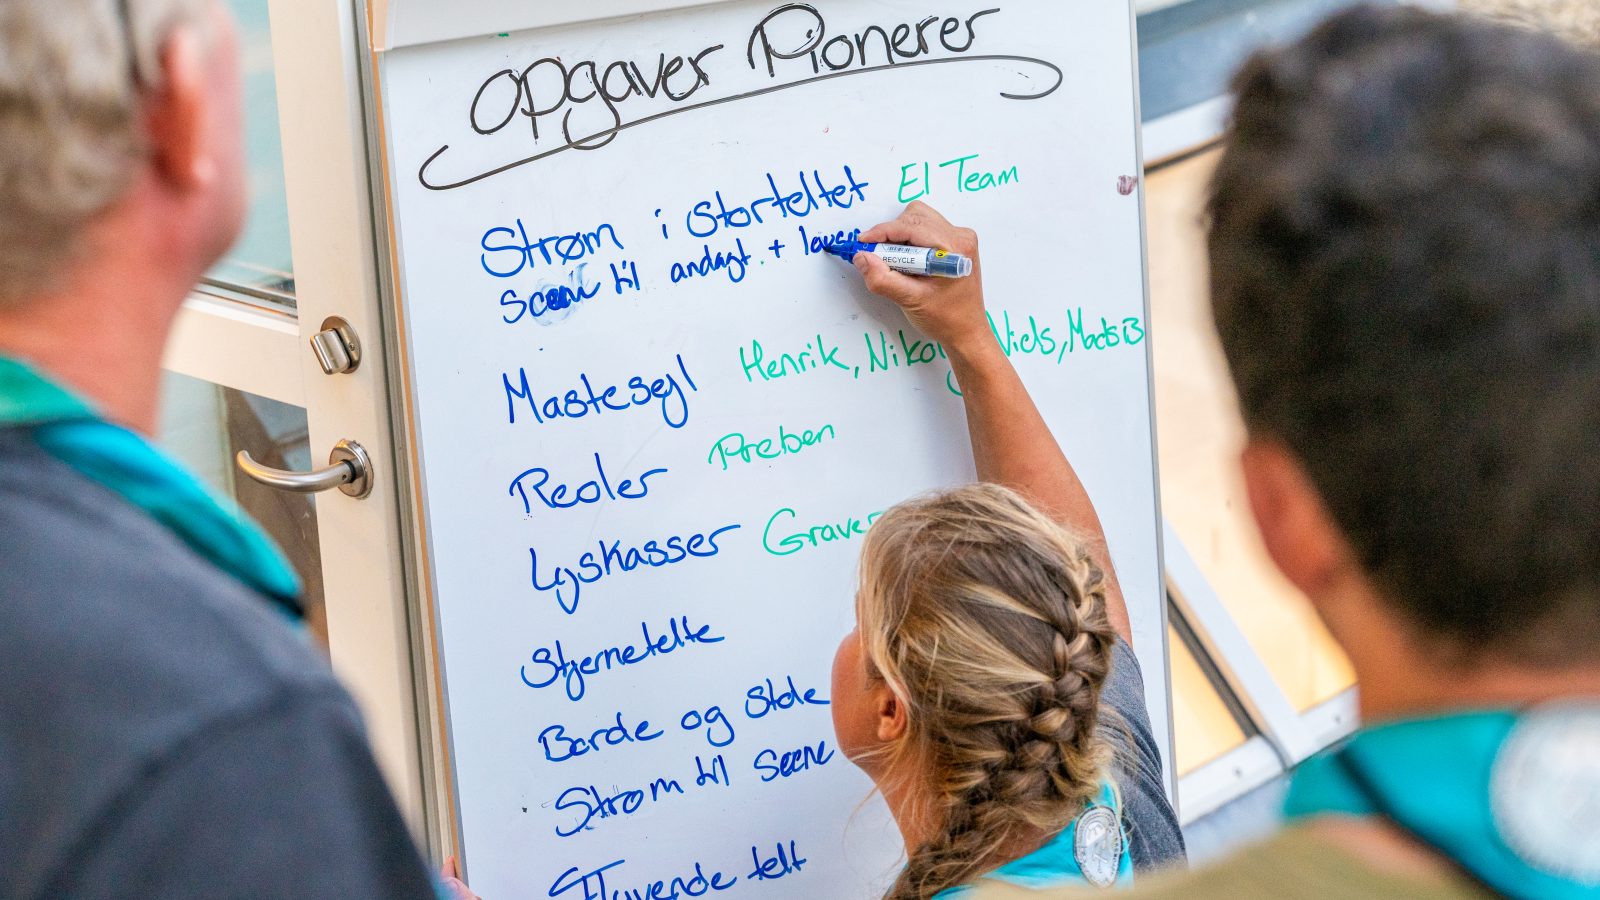 Opgaver Pionerer
Strøm i storteltet El Team
Scene til andagt. +
RECYCLE
Mastesejl Henrik, Niels, Mads B
Reoler Preben
Lyskasser
Stjernetelte
Borde og stole
Strøm til scene
telt